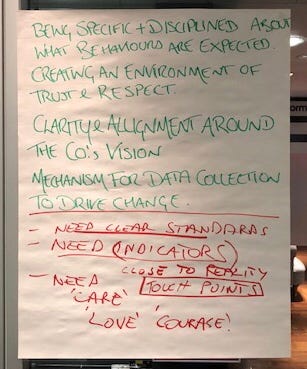 BEING SPECIFIC + DISCIPLINED ABOUT
WHAT BEHAVIOURS ARE EXPECTED.
CREATING AN ENVIRONMENT OF
TRUST & RESPECT.
CLARITY & ALLIGNMENT AROUND
THE CO.'S VISION
MECHANISM FOR DATA COLLECTION
TO DRIVE CHANGE.
- NEED CLEAR STANDARDS
- NEED INDICATORS
CLOSE TO REALITY
- NEED TOUCH POINTS
'CARE'
'LOVE' 'COURAGE!'